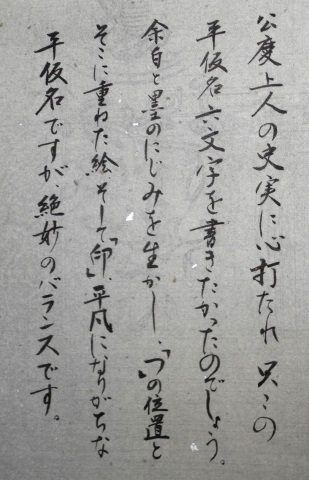 公度上人の史実に心打たれ只この
平仮名六文字を書きたかったのでしょう。
余白と墨のにじみを生かし、「つ」の位置と
そこに重ねた絵そして「印」、平凡になりがちな
平仮名ですが、絶妙のバランスです。